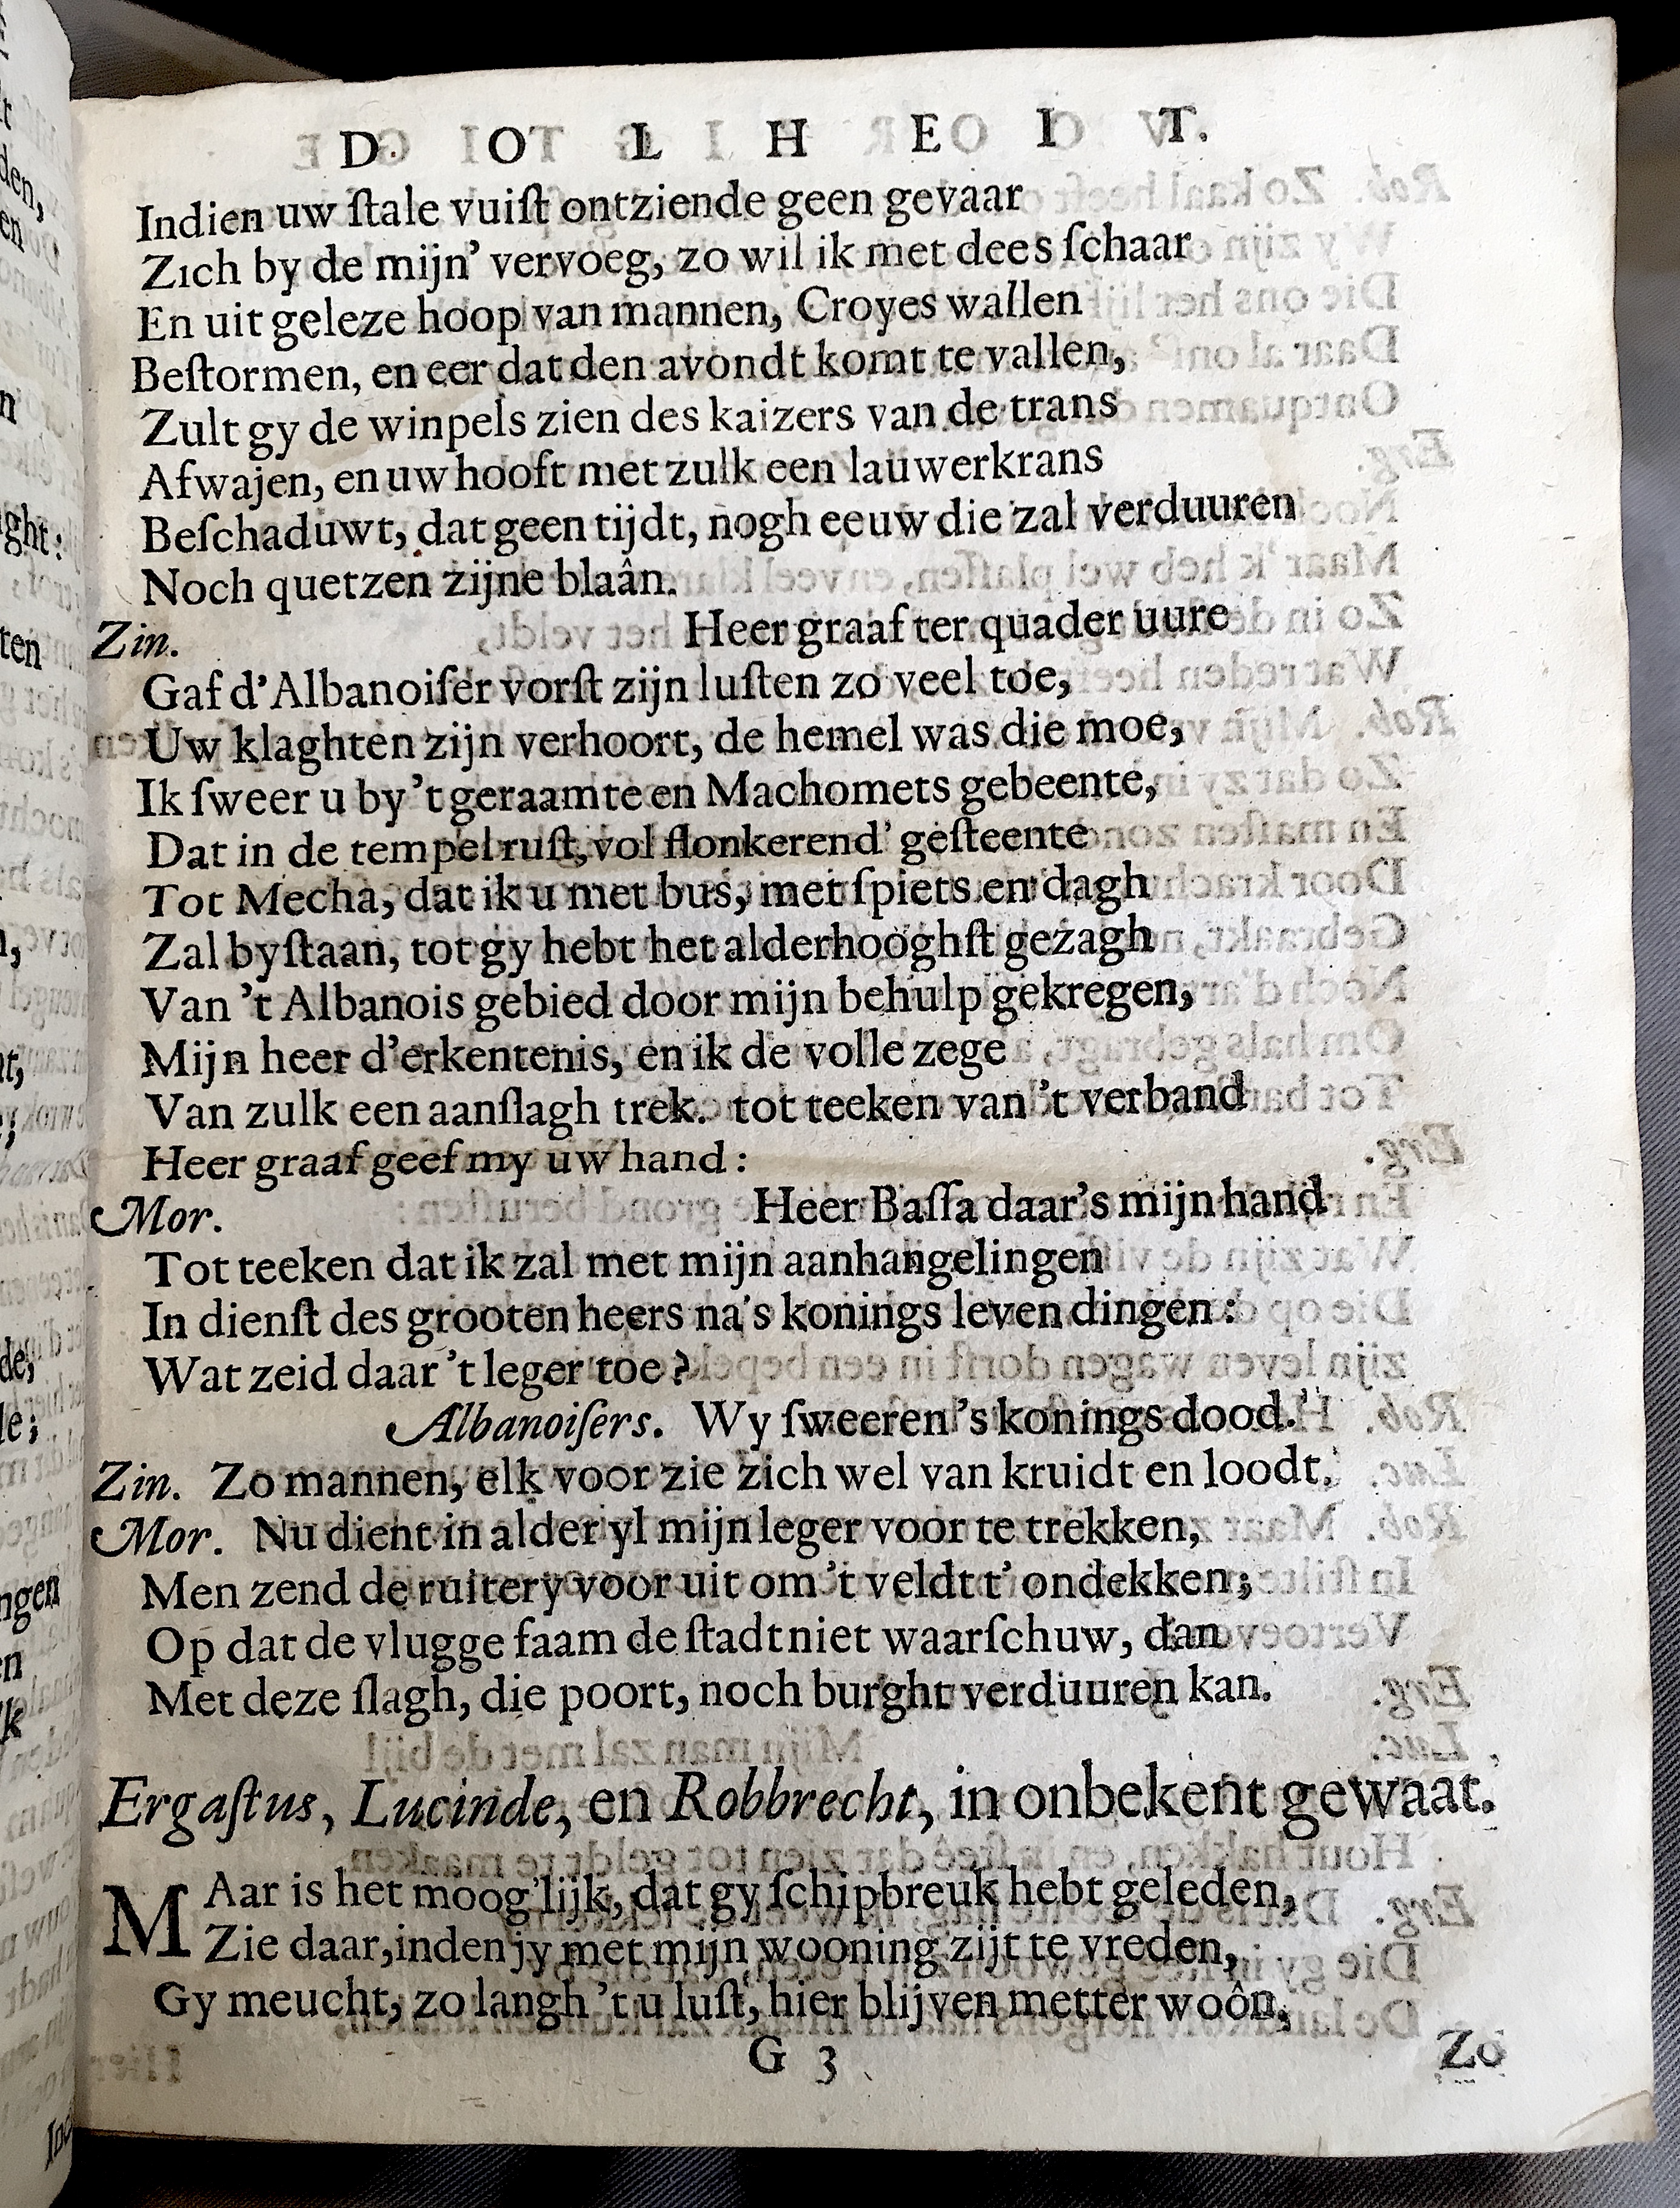 D O L H E I T.
Indien uw ſtale vuiſt ontziende geen gevaar
Zich by de mijn’ vervoeg, zo wil ik met dees ſchaar
En uit geleze hoop van mannen, Croyes wallen
Beſtormen, en eer dat den avondt komt te vallen,
Zult gy de winpels zien des kaizers van de trans
Afwajen, en uw hooft met zulk een lauwerkrans
Beſchaduwt, dat geen tijdt, nogh eeuw die zal verduuren
Noch quetzen zijne blaân.
Zin. Heer graaf ter quader uure
Gaf d’Albanoiſer vorſt zijn luſten zo veel toe,
Uw klaghten zijn verhoort, de hemel was die moe,
Ik ſweer u by ’t geraamte en Machomets gebeente,
Dat in de tempel ruſt, vol flonkerend’ geſteente
Tot Mecha, dat ik u met bus, met ſpiets en dagh
Zal byſtaan, tot gy hebt het alderhooghſt gezagh
Van ’t Albanois gebied door mijn behulp gekregen,
Mijn heer d’erkentenis, en ik de volle zege
Van zulk een aanſlagh trek. tot teeken van ’t verband
Heer graaf geef my uw hand :
Mor. Heer Baſſa daar’s mijn hand
Tot teeken dat ik zal met mijn aanhangelingen
In dienſt des grooten heers na’s konings leven dingen :
Wat zeid daar ’t leger toe ?
Albanoiſers. Wy ſweeren ’s konings dood.
Zin. Zo mannen, elk voor zie zich wel van kruidt en loodt.
Mor. Nu dient in alder yl mijn leger voor te trekken,
Men zend de ruitery voor uit om ’t veldt t’ ondekken;
Op dat de vlugge faam de ſtadt niet waarſchuw, dan
Met deze ſlagh, die poort, noch burght verduuren kan.
Ergaſtus, Lucinde, en Robbrecht, in onbekent gewaat.
MAar is het moog’lijk, dat gy ſchipbreuk hebt geleden,
Zie daar, inden jy met mijn wooning zijt te vreden,
Gy meucht, zo langh ’t u luſt, hier blijven metter woôn,
G 3 Zo